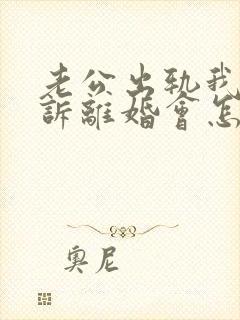 老公出轨我
訴離婚會怎
奧尼